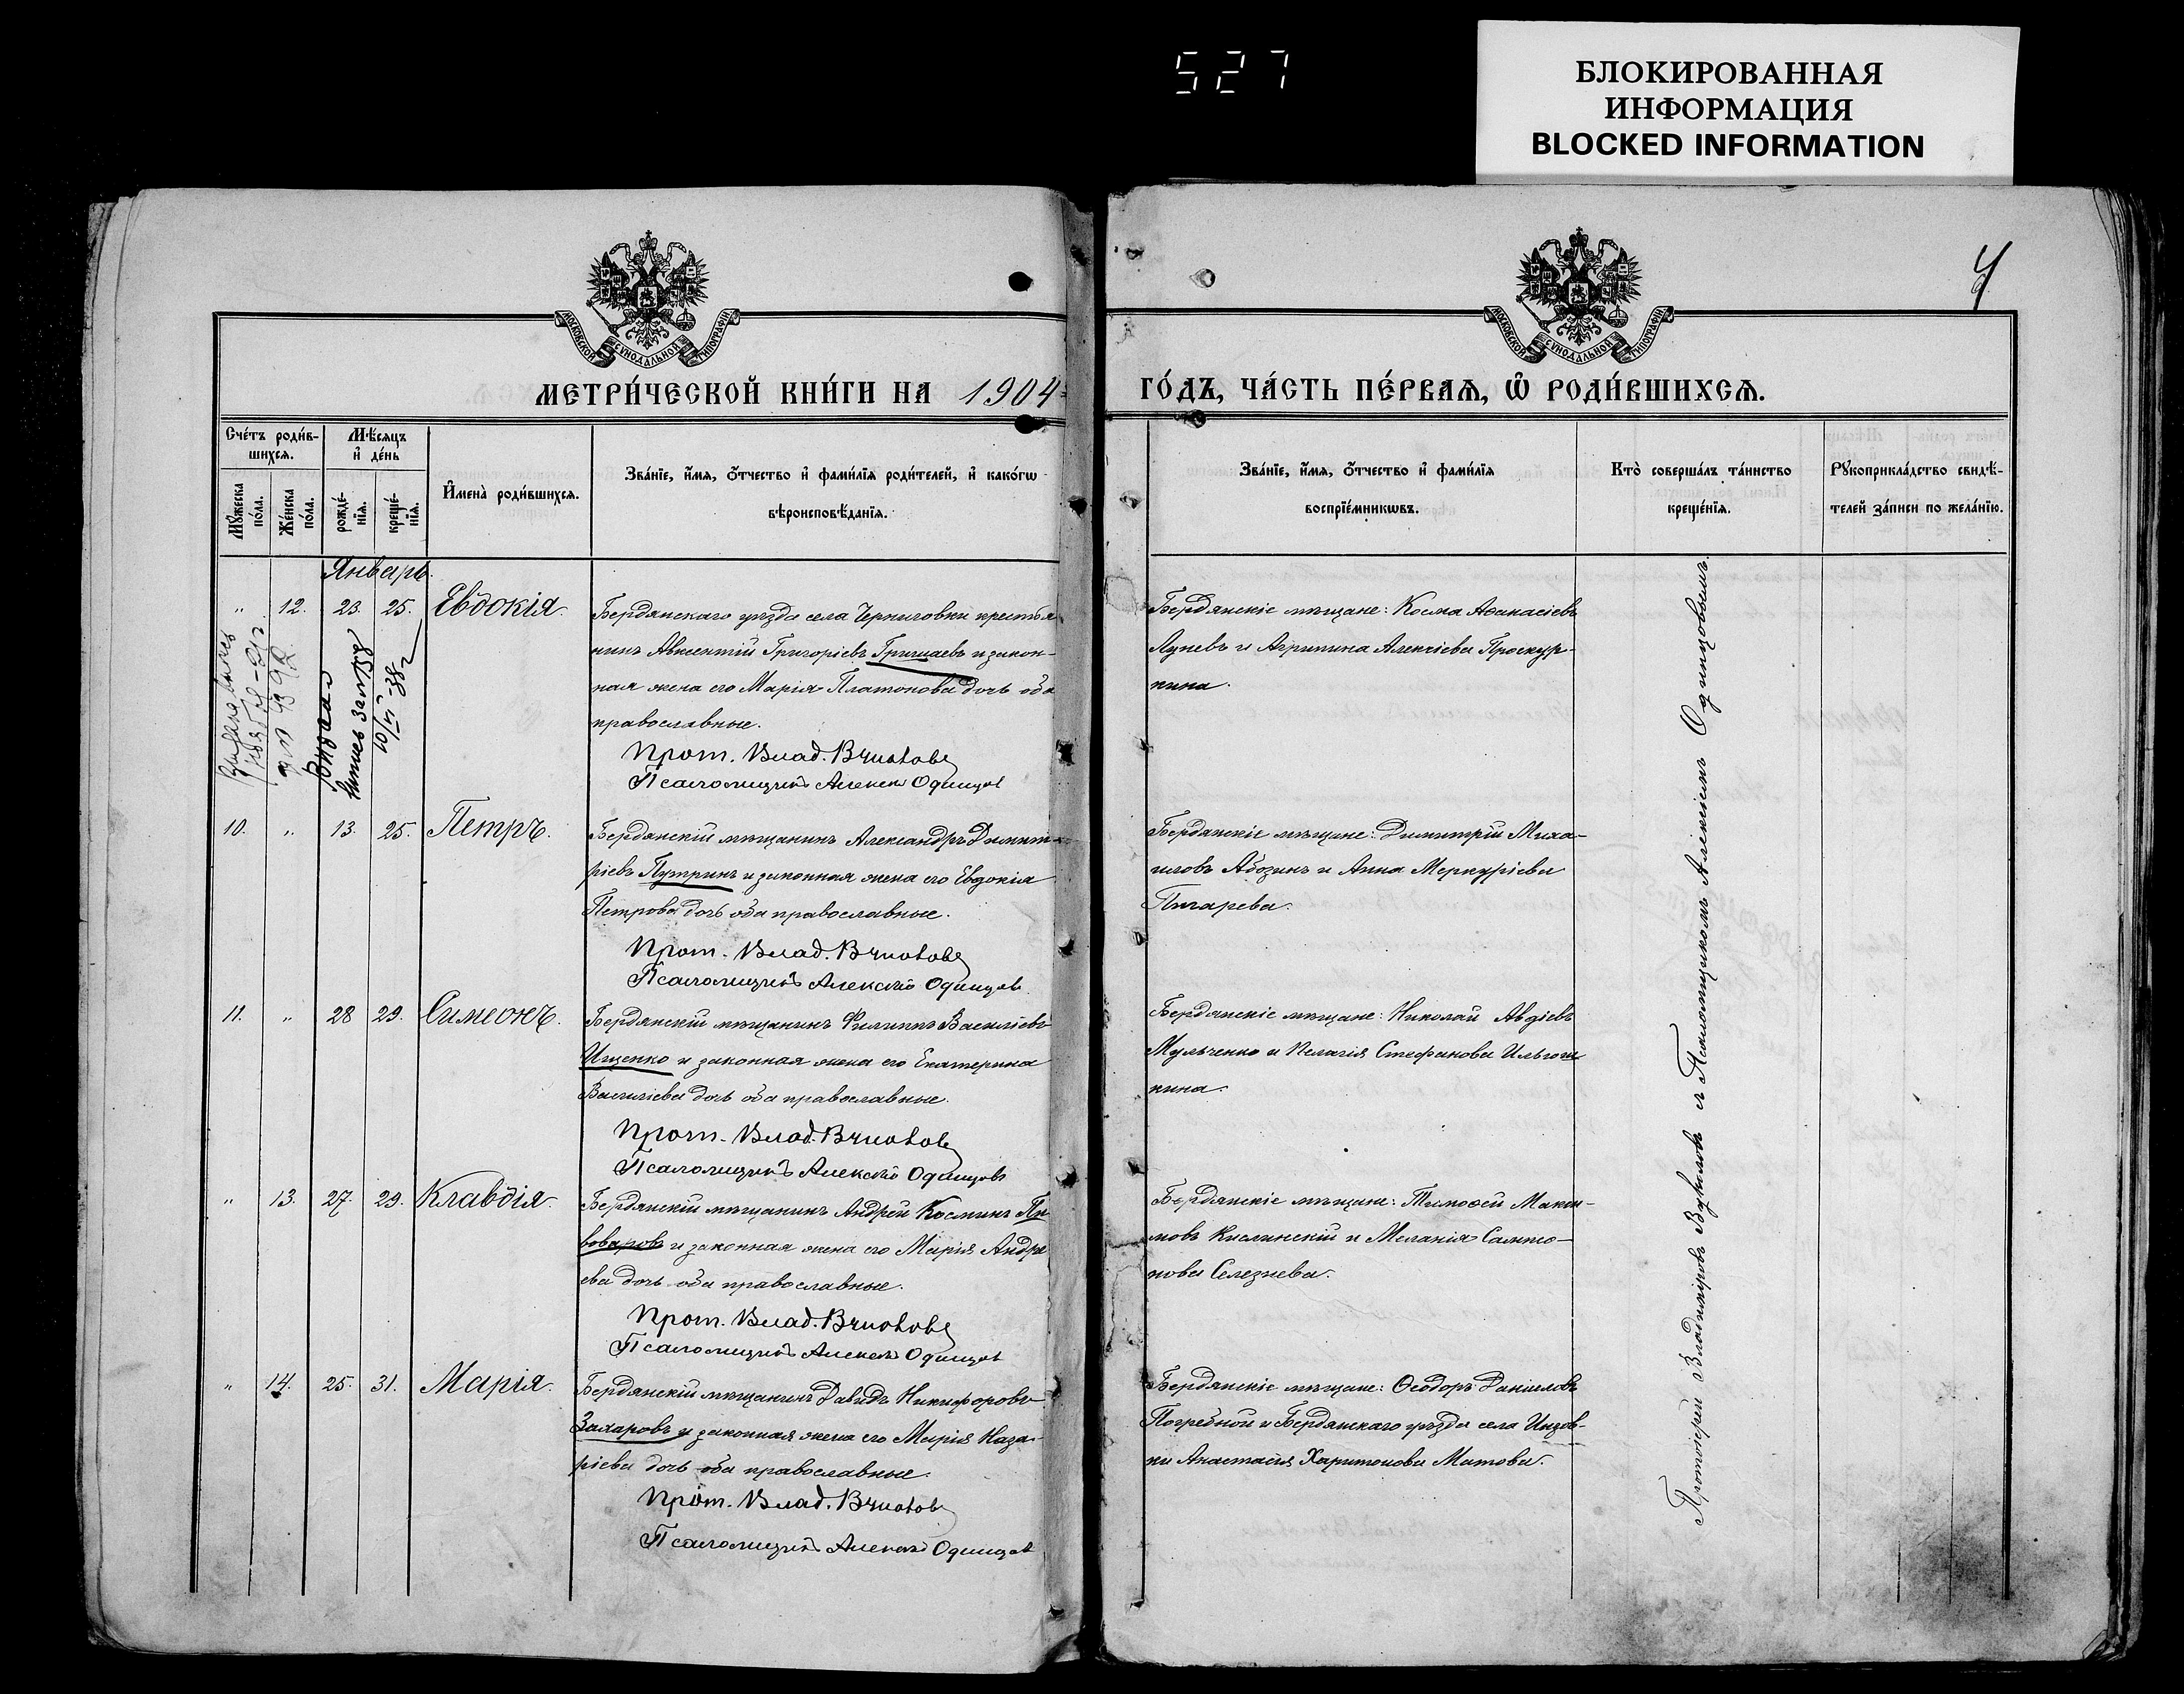 527
БЛОКИРОВАННАЯ
ИНФОРМАЦИЯ
BLOCKED INFORMATION
4
МОСКОВСКОЙ СѴНОДАЛЬНОЙ ТИПОГРАФІИ
МОСКОВСКОЙ СѴНОДАЛЬНОЙ ТИПОГРАФІИ
МЕТРИ́ЧЕСКОЙ КНИ́ГИ НА 1904
ГО́ДЪ, ЧА́СТЬ ПЕ́РВАѦ, Ѽ РОДИ́ВШИХСѦ.
Счетъ роди́в-
шихся.
Мѣ́сяцъ
и҆ де́нь
Мꙋжеска по́ла.
Же́нска по́ла.
рожде́-
нїя.
креще́-
нїя.
И҆мена̀ роди́вшихся.
Зва́нїе, и҆́мя, ѻ҆́тчество и҆ фами́лїя роди́телей, и҆ како́гѡ
вѣроисповѣ́данїя.
Зва́нїе, и҆́мя, ѻ҆́тчество и҆ фами́лїя
воспрїе́мникѡвъ.
Кто̀ соверша́лъ та́инство
креще́нїя.
Рꙋкоприкла́дство свидѣ́-
телей за́писи по жела́нїю.
Январь.
" 12. 23. 25. Евдокія.
Бердянскаго уѣзда села Черниговки крестья
нинъ Авксентій Григорьевъ Гришаевъ и закон-
ная жена его Марія Платонова дочь оба
православные.
Прот. Влад. Вуколовъ
Псаломщикъ Алексій Одинцовъ
Бердянскіе мѣщане: Косма Аѳанасіевъ
Луневъ и Агрипина Алексіева Проскур-
нина.
10. " 13. 25. Петръ.
Бердянскій мѣщанинъ Александръ Димит-
ріевъ Путринъ и законная жена его Евдокія
Петрова дочь оба православные.
Прот. Влад. Вуколовъ
Псаломщикъ Алексій Одинцовъ
Бердянскіе мѣщане: Димитрій Миха-
иловъ Абозинъ и Анна Меркуріева
Пичарева.
11. " 28 29. Симеонъ.
Бердянскій мѣщанинъ Филиппъ Василіевъ
Ищенко и законная жена его Екатерина
Василіева дочь оба православные.
Прот. Влад. Вуколовъ
Псаломщикъ Алексій Одинцовъ
Бердянскіе мѣщане: Николай Авдіевъ
Мульченко и Пелагія Стефанова
нина.
" 13. 27. 29. Клавдія.
Бердянскій мѣщанинъ Андрей Косминъ Пи
воваровъ и законная жена его Марія Андре
ева дочь оба православные.
Прот. Влад. Вуколовъ
Псаломщикъ Алексій Одинцовъ
Бердянскіе мѣщане: Тимоѳей Макси-
мовъ Кислинскій и Меланія Сампсо-
нова Селезнева.
" 14. 25. 31. Марія.
Бердянскій мѣщанинъ Давидъ Никифоровъ
Захаровъ и законная жена его Марія Наза-
ріева дочь оба православные.
Прот. Влад. Вуколовъ
Псаломщикъ Алексій Одинцовъ
Бердянскіе мѣщане: Ѳеодоръ Даніиловъ
Погребной и Бердянскаго уѣзда села Инзов-
ки Анастасія Харитонова Матова.
Протоіерей Владиміръ Вуколовъ съ Псаломщикомъ Алексіемъ Одинцовымъ